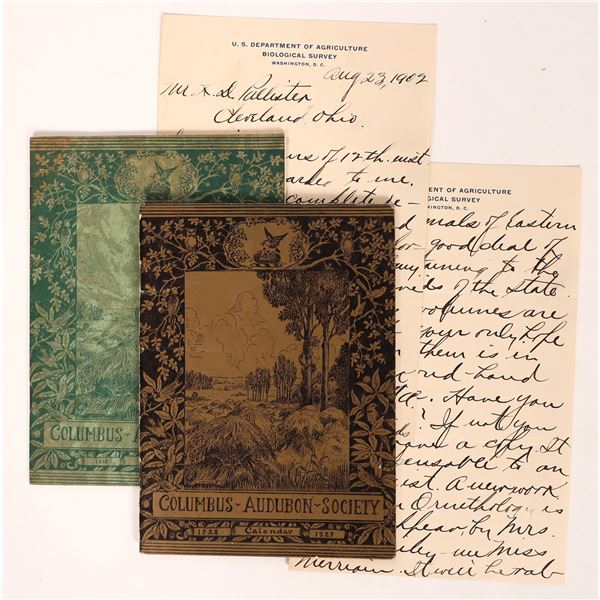 U. S. DEPARTMENT OF AGRICULTURE
BIOLOGICAL SURVEY
WASHINGTON, D. C.
Aug 23, 1902
Cleveland, Ohio.
of 12th inst.
to me.
complete
DEPARTMENT OF AGRICULTURE
BIOLOGICAL SURVEY
WASHINGTON, D. C.
of Eastern
good deal of
to the
of the State.
volumes are
your only hope
them is in
hand
Have you
? If not you
a copy. It
to an
A new work
Ornithology is
by Mrs.
née Miss
Merriam. It will be
COLUMBUS-
COLUMBUS - AUDUBON - SOCIETY
1928 Calendar 1929